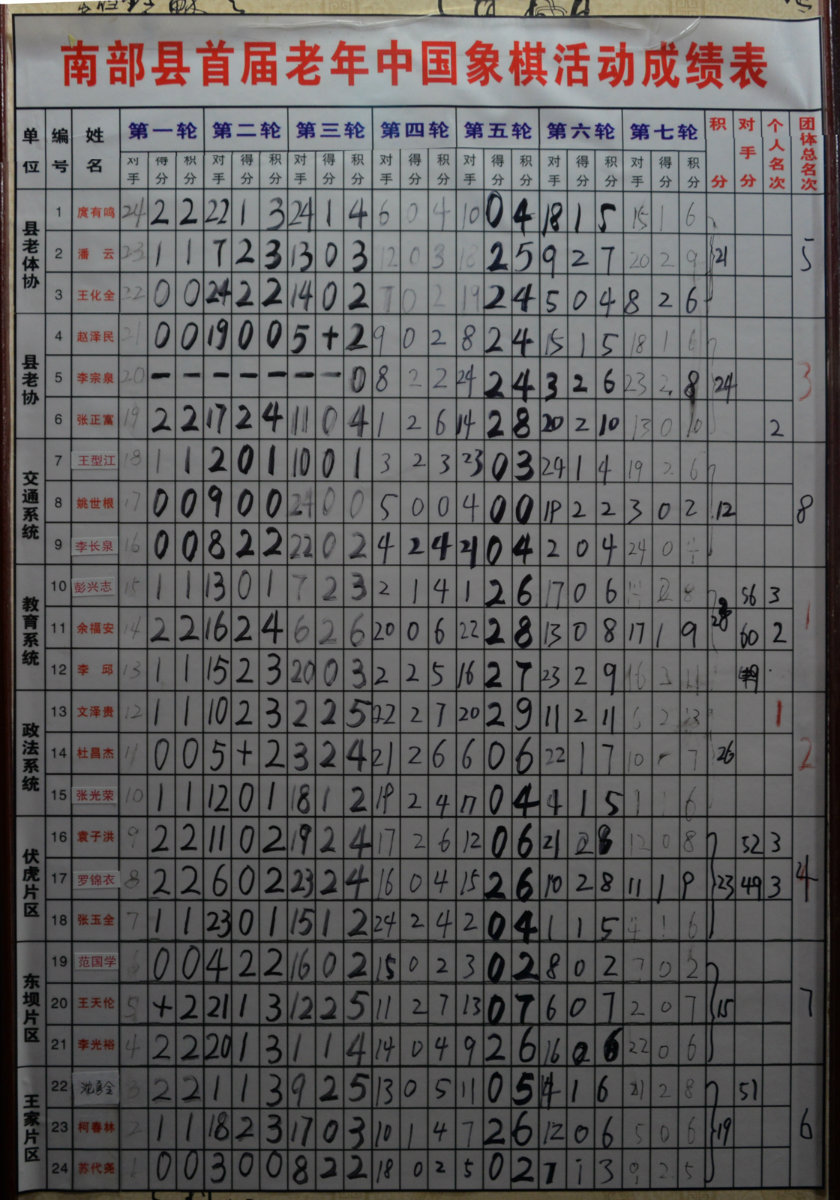 南部县首届老年中国象棋活动成绩表
单位 编号 姓名 第一轮 第二轮 第三轮 第四轮 第五轮 第六轮 第七轮 积分 对手分 个人名次 团体总名次
对手 得分 积分 对手 得分 积分 对手 得分 积分 对手 得分 积分 对手 得分 积分 对手 得分 积分 对手 得分 积分
县老体协
1 庹有鸣 24 2 2 22 1 3 24 1 4 6 0 4 10 0 4 18 1 5 15 1 6
2 潘云 23 1 1 7 2 3 13 0 3 12 0 3 18 2 5 9 2 7 20 2 9 21 5
3 王化全 22 0 0 24 2 2 14 0 2 7 0 2 19 2 4 5 0 4 8 2 6
县老协
4 赵泽民 21 0 0 19 0 0 5 + 2 9 0 2 8 2 4 15 1 5 18 1 6
5 李宗泉 20 - - - - - - - 0 8 2 2 24 2 4 3 2 6 23 2 8 24 3
6 张正富 19 2 2 17 2 4 11 0 4 1 2 6 14 2 8 20 2 10 13 0 10 2
交通系统
7 王型江 18 1 1 2 0 1 10 0 1 3 2 3 23 0 3 24 1 4 19 2 6
8 姚世根 17 0 0 9 0 0 24 0 0 5 0 0 4 0 0 19 2 2 3 0 2 12 8
9 李长泉 16 0 0 8 2 2 22 0 2 4 2 4 21 0 4 2 0 4 24 0
教育系统
10 彭兴志 15 1 1 13 0 1 7 2 3 2 1 4 1 2 6 17 0 6 2 8 56 3
11 余福安 14 2 2 16 2 4 6 2 6 20 0 6 22 2 8 13 0 8 17 1 9 28 60 2 1
12 李邱 13 1 1 15 2 3 20 0 3 2 2 5 16 2 7 23 2 9 16 2 11
政法系统
13 文泽贵 12 1 1 10 2 3 2 2 5 22 2 7 20 2 9 11 2 11 6 2 13 1
14 杜昌杰 11 0 0 5 + 2 3 2 4 21 2 6 6 0 6 22 1 7 10 - 7 26 2
15 张光荣 10 1 1 12 0 1 18 1 2 19 2 4 17 0 4 4 1 5 1 1 6
伏虎片区
16 袁子洪 9 2 2 11 0 2 19 2 4 17 2 6 12 0 6 21 2 8 12 0 8 52 3
17 罗锦衣 8 2 2 6 0 2 23 2 4 16 0 4 15 2 6 10 2 8 11 1 9 23 49 3 4
18 张玉全 7 1 1 23 0 1 15 1 2 24 2 4 2 0 4 1 1 5 4 1 6
东坝片区
19 范国学 6 0 0 4 2 2 16 0 2 15 0 2 3 0 2 8 0 2 7 0 2
20 王天伦 5 + 2 21 1 3 12 2 5 11 2 7 13 0 7 6 0 7 2 0 7 15 7
21 李光裕 4 2 2 20 1 3 1 1 4 14 0 4 9 2 6 16 0 6 22 0 6
王家片区
22 3 2 2 1 1 3 9 2 5 13 0 5 11 0 5 14 1 6 21 2 8 51
23 柯春林 2 1 1 18 2 3 17 0 3 10 1 4 7 2 6 12 0 6 5 0 6 19 6
24 苏代尧 1 0 0 3 0 0 8 2 2 18 0 2 5 0 2 7 1 3 9 2 5